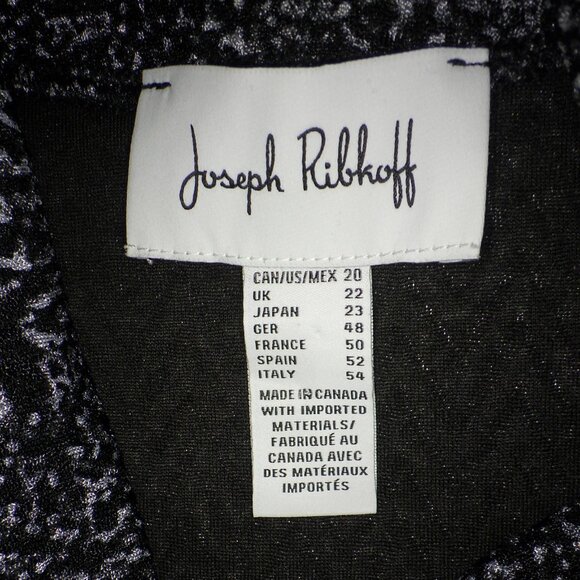 Joseph Ribkoff
CAN/US/MEX 20
UK 22
JAPAN 23
GER 48
FRANCE 50
SPAIN 52
ITALY 54
MADE IN CANADA
WITH IMPORTED
MATERIALS/
FABRIQUÉ AU
CANADA AVEC
DES MATÉRIAUX
IMPORTÉS